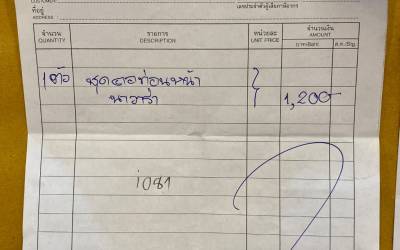 CUSTOMER
ที่อยู่
ADDRESS
เลขประจำตัวผู้เสียภาษีอากร
จำนวน รายการ หน่วยละ จำนวนเงิน
QUANTITY DESCRIPTION UNIT PRICE AMOUNT
บาท/Baht ส.ต./Stg.
1 ตัว ชุดคอท่อนหน้า 1,200-
นาวาร่า